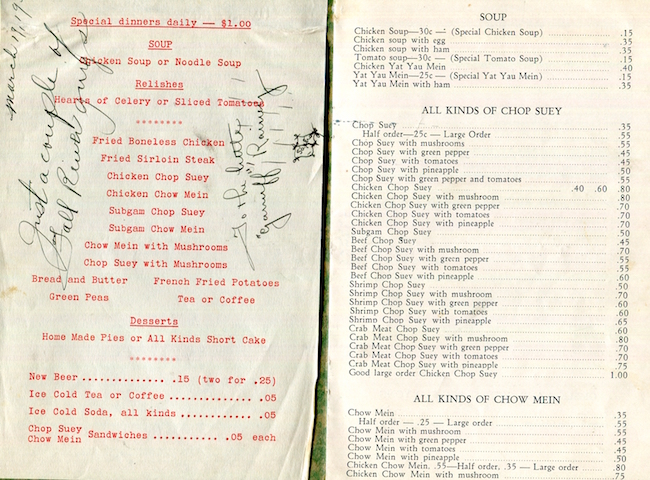 march
Just a couple of
Fall River Guys
Special dinners daily — $1.00
SOUP
Chicken Soup or Noodle Soup
Relishes
Hearts of Celery or Sliced Tomatoes
********
Fried Boneless Chicken
Fried Sirloin Steak
Chicken Chop Suey
Chicken Chow Mein
Subgam Chop Suey
Subgam Chow Mein
Chow Mein with Mushrooms
Chop Suey with Mushrooms
Bread and Butter French Fried Potatoes
Green Peas Tea or Coffee
Desserts
Home Made Pies or All Kinds Short Cake
********
New Beer ............ .15 (two for .25)
Ice Cold Tea or Coffee ............ .05
Ice Cold Soda, all kinds ............ .05
Chop Suey
Chow Mein Sandwiches ........... .05 each
To the
Rainey
SOUP
Chicken Soup—30c — (Special Chicken Soup) .15
Chicken soup with egg .35
Chicken soup with ham .35
Tomato soup—30c — (Special Tomato Soup) .15
Chicken Yat Yau Mein .40
Yat Yau Mein—25c — (Special Yat Yau Mein) .15
Yat Yau Mein with ham .35
ALL KINDS OF CHOP SUEY
Chop Suey .35
Half order—25c — Large Order .55
Chop Suey with mushrooms .55
Chop Suey with green pepper .45
Chop Suey with tomatoes .45
Chop Suey with pineapple .50
Chop Suey with green pepper and tomatoes .55
Chicken Chop Suey .40 .60 .80
Chicken Chop Suey with mushroom .80
Chicken Chop Suey with green pepper .70
Chicken Chop Suey with tomatoes .70
Chicken Chop Suey with pineapple .70
Subgam Chop Suey .50
Beef Chop Suey .45
Beef Chop Suey with mushroom .70
Beef Chop Suey with green pepper .55
Beef Chop Suey with tomatoes .55
Beef Chop Suey with pineapple .60
Shrimp Chop Suey .50
Shrimp Chop Suey with mushroom .70
Shrimp Chop Suey with green pepper .60
Shrimp Chop Suey with tomatoes .60
Shrimp Chop Suey with pineapple .65
Crab Meat Chop Suey .60
Crab Meat Chop Suey with mushroom .80
Crab Meat Chop Suey with green pepper .70
Crab Meat Chop Suey with tomatoes .70
Crab Meat Chop Suey with pineapple .75
Good large order Chicken Chop Suey 1.00
ALL KINDS OF CHOW MEIN
Chow Mein .35
Half order — .25 — Large order .55
Chow Mein with mushroom .55
Chow Mein with green pepper .45
Chow Mein with tomatoes .45
Chow Mein with pineapple .50
Chicken Chow Mein, .55—Half order, .35 — Large order .80
Chicken Chow Mein with mushroom .75